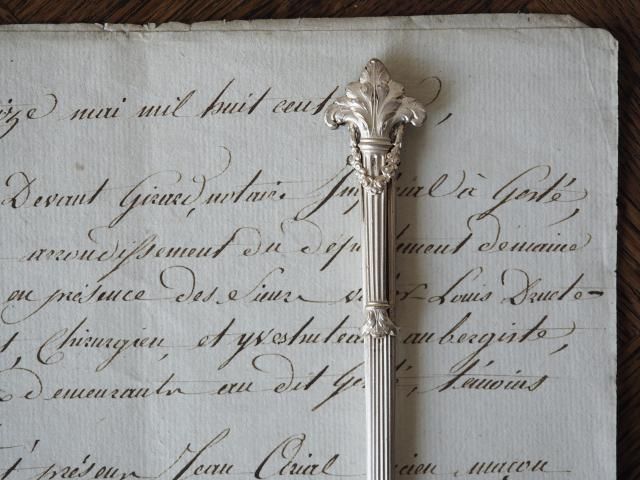 mai mil huit cent
Devant Girard, notaire Impérial à Gesté,
arrondissement du département demaine
en présence des Sieur Louis Druet-
Chirurgien, et yves aubergiste,
demeurants au dit Gesté, témoins
présens Jean maçon